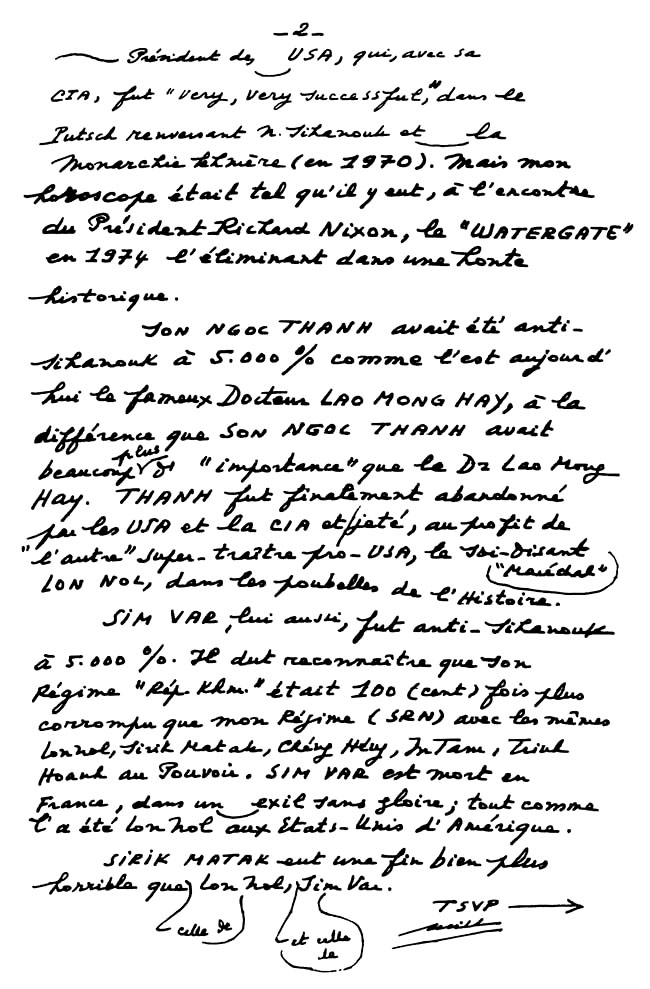 -2-
Président des USA, qui, avec sa
CIA, fut "very, very successful," dans le
Putsch renversant N. Sihanouk et la
Monarchie khmère (en 1970). Mais mon
horoscope était tel qu'il y eut, à l'encontre
du Président Richard Nixon, le "WATERGATE"
en 1974 l'éliminant dans une honte
historique.
SON NGOC THANH avait été anti-
Sihanouk à 5.000 % comme l'est aujourd'
hui le fameux Docteur LAO MONG HAY, à la
différence que SON NGOC THANH avait
beaucoup plus d' "importance" que le Dr Lao Mong
Hay. THANH fut finalement abandonné
par les USA et la CIA et jeté, au profit de
"l'autre" super-traître pro-USA, le soi-Disant
"Maréchal"
LON NOL, dans les poubelles de l'Histoire.
SIM VAR, lui aussi, fut anti-Sihanouk
à 5.000 %. Il dut reconnaître que son
Régime "Rép. Khm." était 100 (cent) fois plus
corrompu que mon Régime (SRN) avec les mêmes
Lonnol, Sirik Matak, Chéng Héng, In Tam, Trinh
Hoanh au Pouvoir. SIM VAR est mort en
France, dans un exil sans gloire; tout comme
l'a été Lon Nol aux Etats-Unis d'Amérique.
SIRIK MATAK eut une fin bien plus
horrible que Lon Nol, Sim Var.
celle de
et celle
de
TSVP →